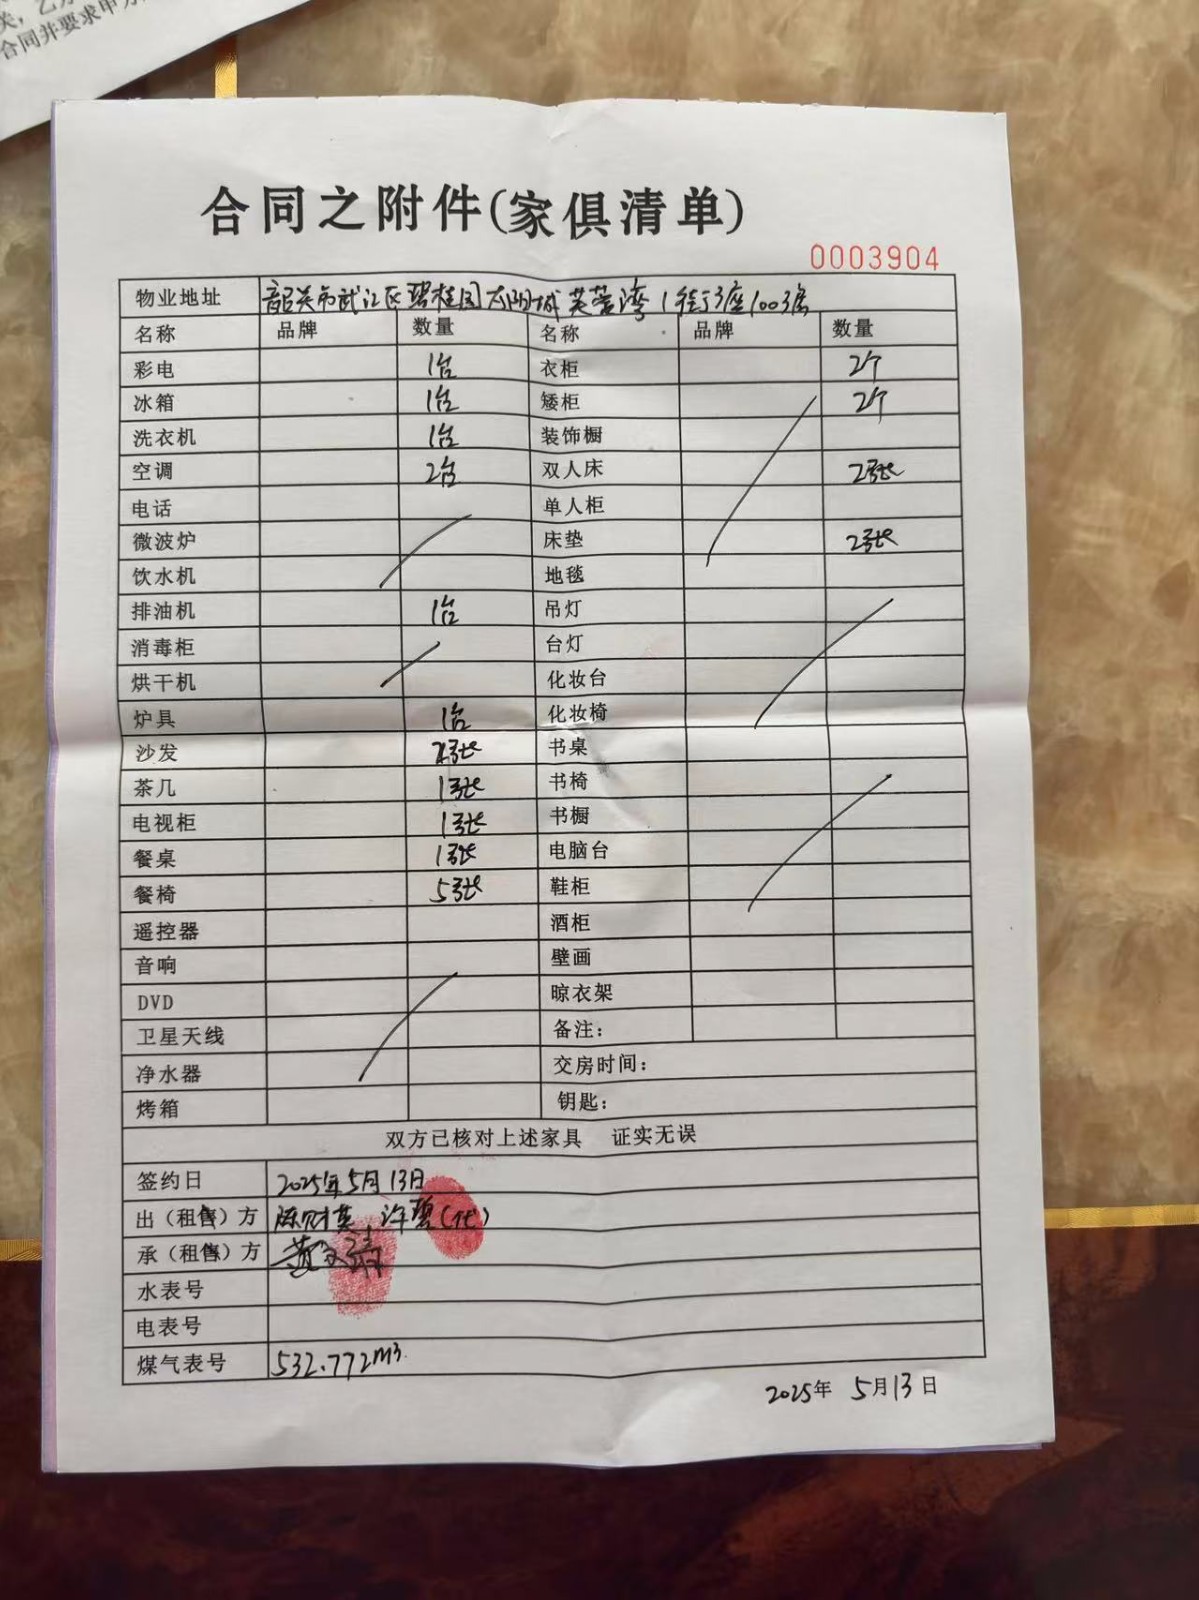 关，乙方
合同并要求甲方
合同之附件(家俱清单)
0003904
物业地址 韶关市武江区碧桂园太阳城芙蓉湾1街13座1003房
名称 品牌 数量 名称 品牌 数量
彩电 1台 衣柜 2个
冰箱 1台 矮柜 2个
洗衣机 1台 装饰橱
空调 2台 双人床 2张
电话 单人柜
微波炉 床垫 2张
饮水机 地毯
排油机 1台 吊灯
消毒柜 台灯
烘干机 化妆台
炉具 1台 化妆椅
沙发 2张 书桌
茶几 1张 书椅
电视柜 1张 书橱
餐桌 1张 电脑台
餐椅 5张 鞋柜
遥控器 酒柜
音响 壁画
DVD 晾衣架
卫星天线 备注：
净水器 交房时间：
烤箱 钥匙：
双方已核对上述家具 证实无误
签约日 2025年5月13日
出（租售）方 陈财英 许碧(代)
承（租售）方 黄 清
水表号
电表号
煤气表号 532.772m3
2025年 5月13日